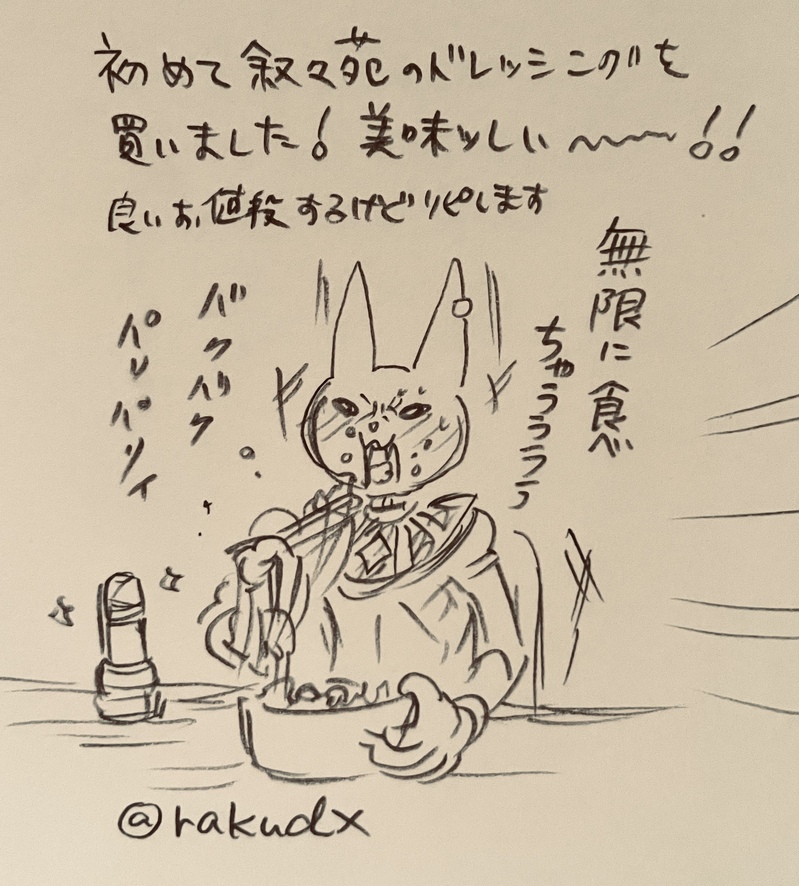 初めて叙々苑のドレッシングを
買いました!美味ッしい〜〜〜!!
良いお値段するけどリピします
無限に食べ
ちゃうううう
バクバク
パリパリィ
@rakudx